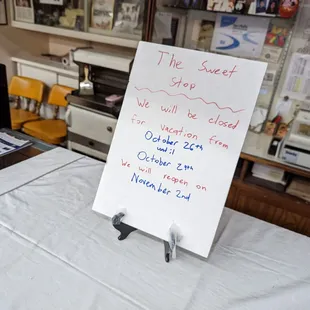 The Sweet
Stop
We will be closed
for vacation from
October 26th
until
October 29th
We will reopen on
November 2nd